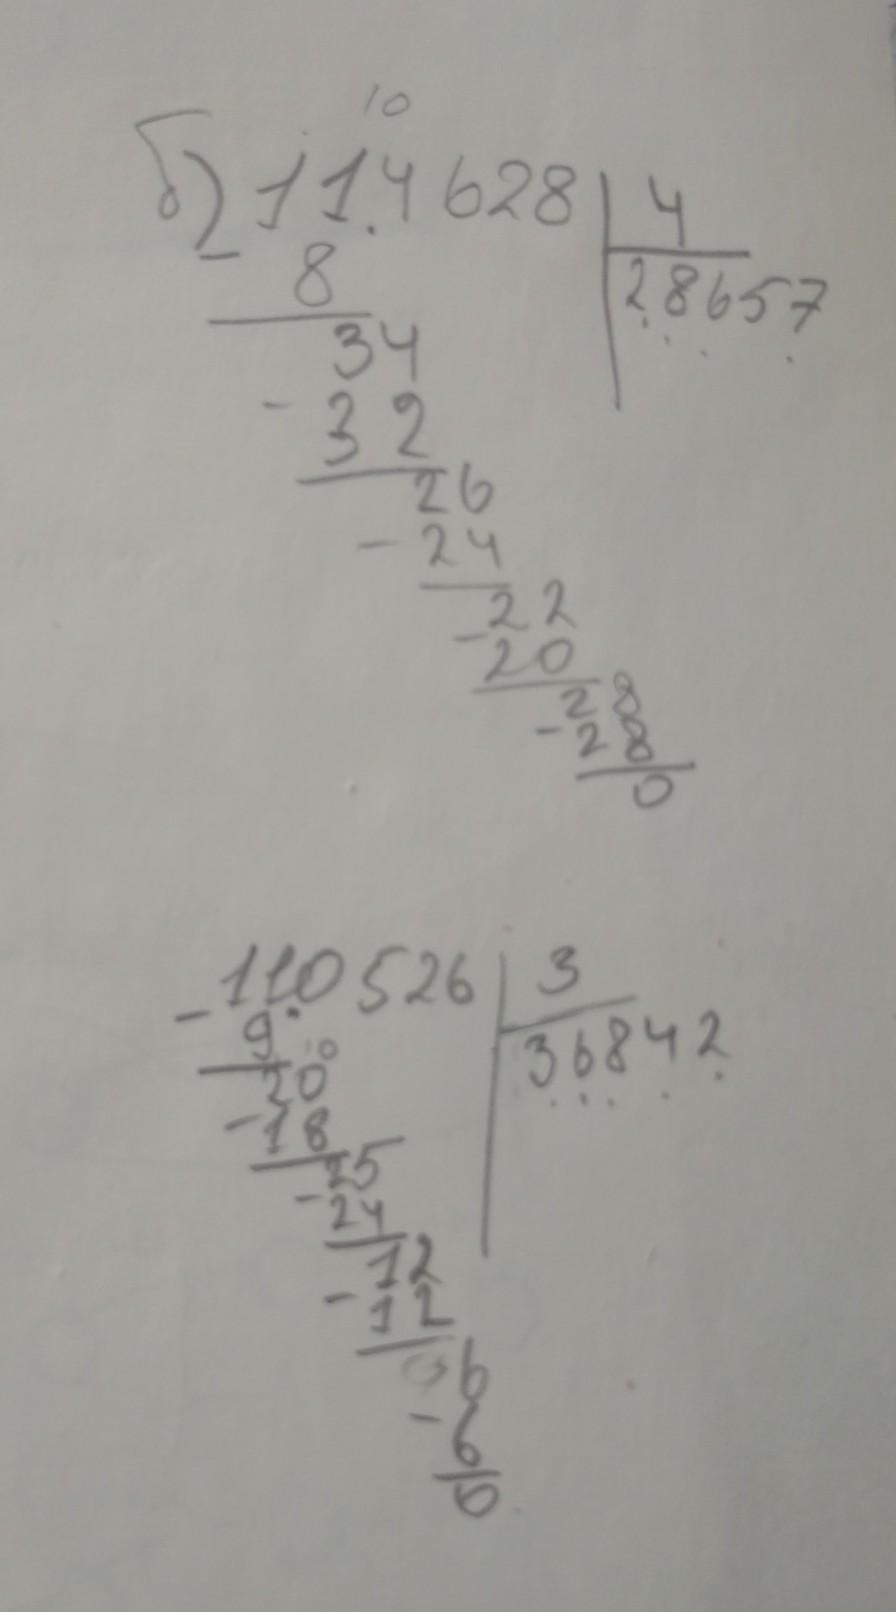 10
б) 114628 | 4
- 8 | 28657
34
- 32
26
- 24
22
- 20
28
- 28
0
110526 | 3
- 9 | 36842
10
20
- 18
25
- 24
12
- 12
06
- 6
0